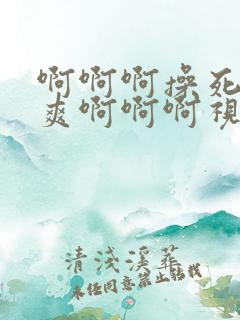 啊啊啊操死
爽啊啊啊視
清浅溪葬
未经同意禁止转载